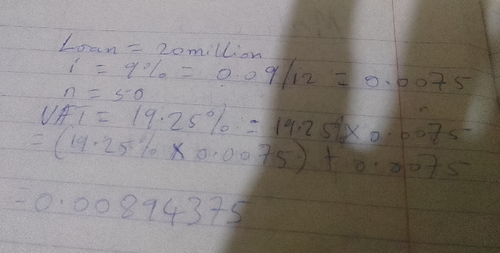 Loan = 20 million
i = 9% = 0.09/12 = 0.0075
n = 50
VAT = 19.25% = 19.25% X 0.0075
= (19.25% X 0.0075) + 0.0075
= 0.00894375